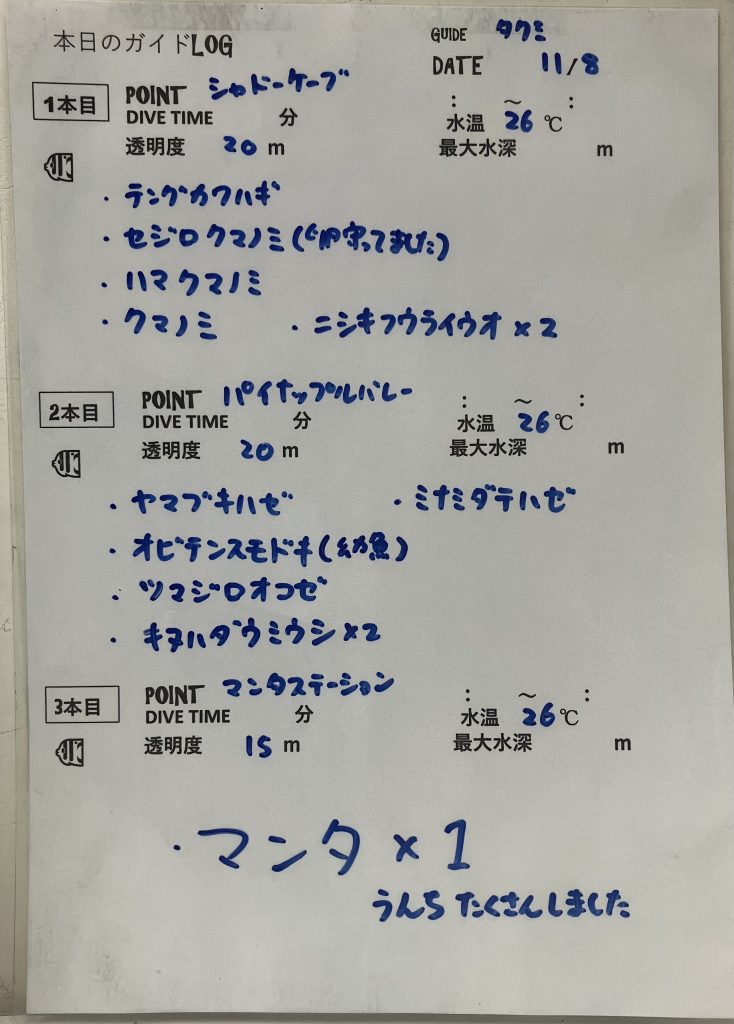 本日のガイドLOG
GUIDE タクミ
DATE 11/8
1本目
POINT シャドーケーブ
: ～ :
DIVE TIME 分
水温 26℃
透明度 20 m
最大水深 m
・テングカワハギ
・セジロクマノミ(卵守ってました)
・ハマクマノミ
・クマノミ ・ニシキフウライウオ×2
2本目
POINT パイナップルバレー
: ～ :
DIVE TIME 分
水温 26℃
透明度 20 m
最大水深 m
・ヤマブキハゼ ・ミナミダテハゼ
・オビテンスモドキ(幼魚)
・ツマジロオコゼ
・キヌハダウミウシ×2
3本目
POINT マンタステーション
: ～ :
DIVE TIME 分
水温 26℃
透明度 15 m
最大水深 m
・マンタ×1
うんちたくさんしました